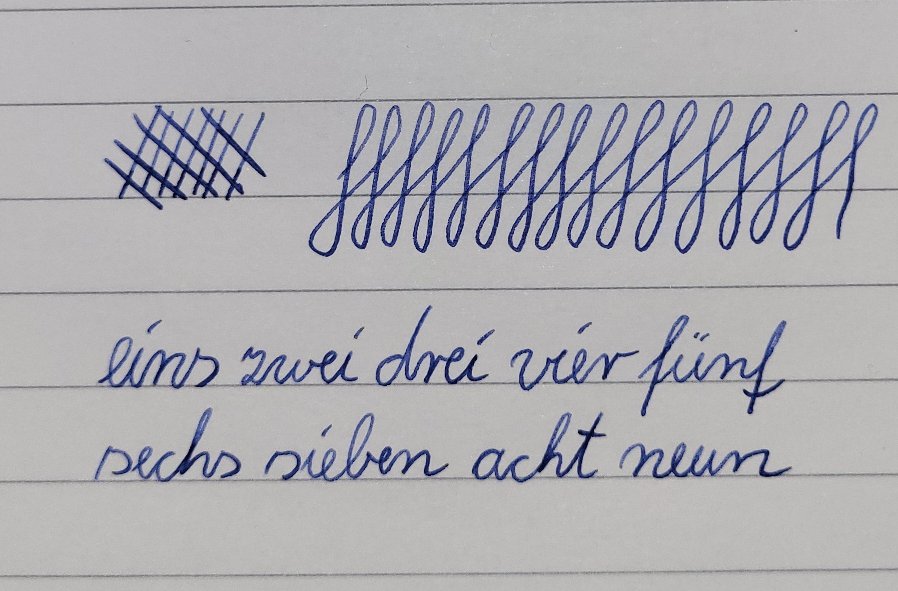 eins zwei drei vier fünf
sechs sieben acht neun